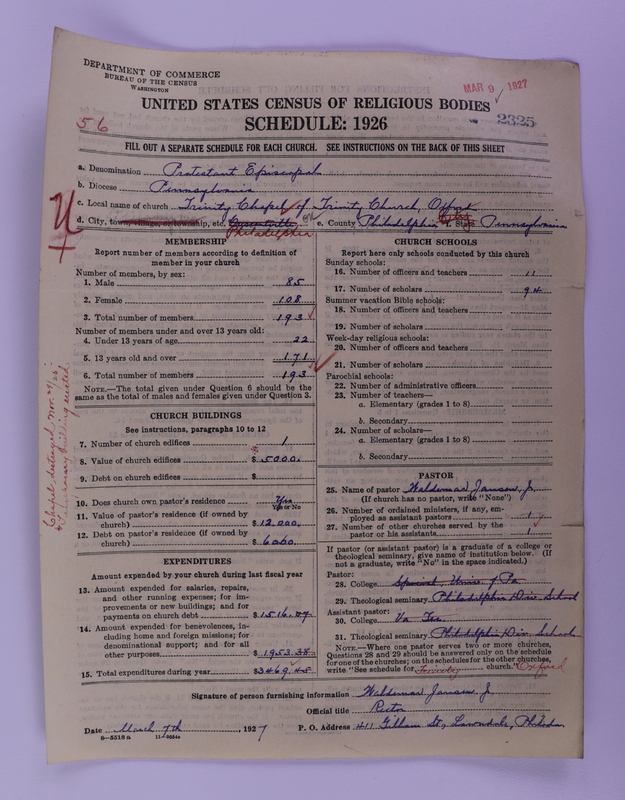 DEPARTMENT OF COMMERCE
BUREAU OF THE CENSUS
WASHINGTON
MAR 9 1927
UNITED STATES CENSUS OF RELIGIOUS BODIES
2325
56
SCHEDULE: 1926
FILL OUT A SEPARATE SCHEDULE FOR EACH CHURCH. SEE INSTRUCTIONS ON THE BACK OF THIS SHEET
a. Denomination Protestant Episcopal
b. Diocese Pennsylvania
c. Local name of church Trinity Chapel of Trinity Church, Oxford
d. City, town, village, or township, etc. Philadelphia e. County Philadelphia f. State Pennsylvania
MEMBERSHIP
Report number of members according to definition of
member in your church
Number of members, by sex:
1. Male 85
2. Female 108
3. Total number of members 193
Number of members under and over 13 years old:
4. Under 13 years of age 22
5. 13 years old and over 171
6. Total number of members 193
NOTE.—The total given under Question 6 should be the
same as the total of males and females given under Question 3.
CHURCH BUILDINGS
See instructions, paragraphs 10 to 12
7. Number of church edifices 1
8. Value of church edifices $5000.
9. Debt on church edifices $
10. Does church own pastor's residence Yes
Yes or No
11. Value of pastor's residence (if owned by
church) $12,000.
12. Debt on pastor's residence (if owned by
church) $6000.
EXPENDITURES
Amount expended by your church during last fiscal year
13. Amount expended for salaries, repairs,
and other running expenses; for im-
provements or new buildings; and for
payments on church debt $1516.07
14. Amount expended for benevolences, in-
cluding home and foreign missions; for
denominational support; and for all
other purposes $1953.38
15. Total expenditures during year $3469.45
CHURCH SCHOOLS
Report here only schools conducted by this church
Sunday schools:
16. Number of officers and teachers 11
17. Number of scholars 94
Summer vacation Bible schools:
18. Number of officers and teachers
19. Number of scholars
Week-day religious schools:
20. Number of officers and teachers
21. Number of scholars
Parochial schools:
22. Number of administrative officers
23. Number of teachers—
a. Elementary (grades 1 to 8)
b. Secondary
24. Number of scholars—
a. Elementary (grades 1 to 8)
b. Secondary
PASTOR
25. Name of pastor Waldemar Jansen, Jr.
(If church has no pastor, write "None")
26. Number of ordained ministers, if any, em-
ployed as assistant pastors 1
27. Number of other churches served by the
pastor or his assistants 1
If pastor (or assistant pastor) is a graduate of a college or
theological seminary, give name of institution below. (If
not a graduate, write "No" in the space indicated.)
Pastor:
28. College Special, Univ. of Pa
29. Theological seminary Philadelphia Div. School
Assistant pastor:
30. College
31. Theological seminary Philadelphia Div. School
NOTE.—Where one pastor serves two or more churches,
Questions 28 and 29 should be answered only on the schedule
for one of the churches; on the schedules for the other churches,
write "See schedule for Trinity church." Oxford
Chapel destroyed Nov.
Temporary building erected
Signature of person furnishing information Waldemar Jansen Jr.
Official title Rector
Date March 7th, 1927 P. O. Address 411 Gilham St., Lawndale, Philada
8—5518a